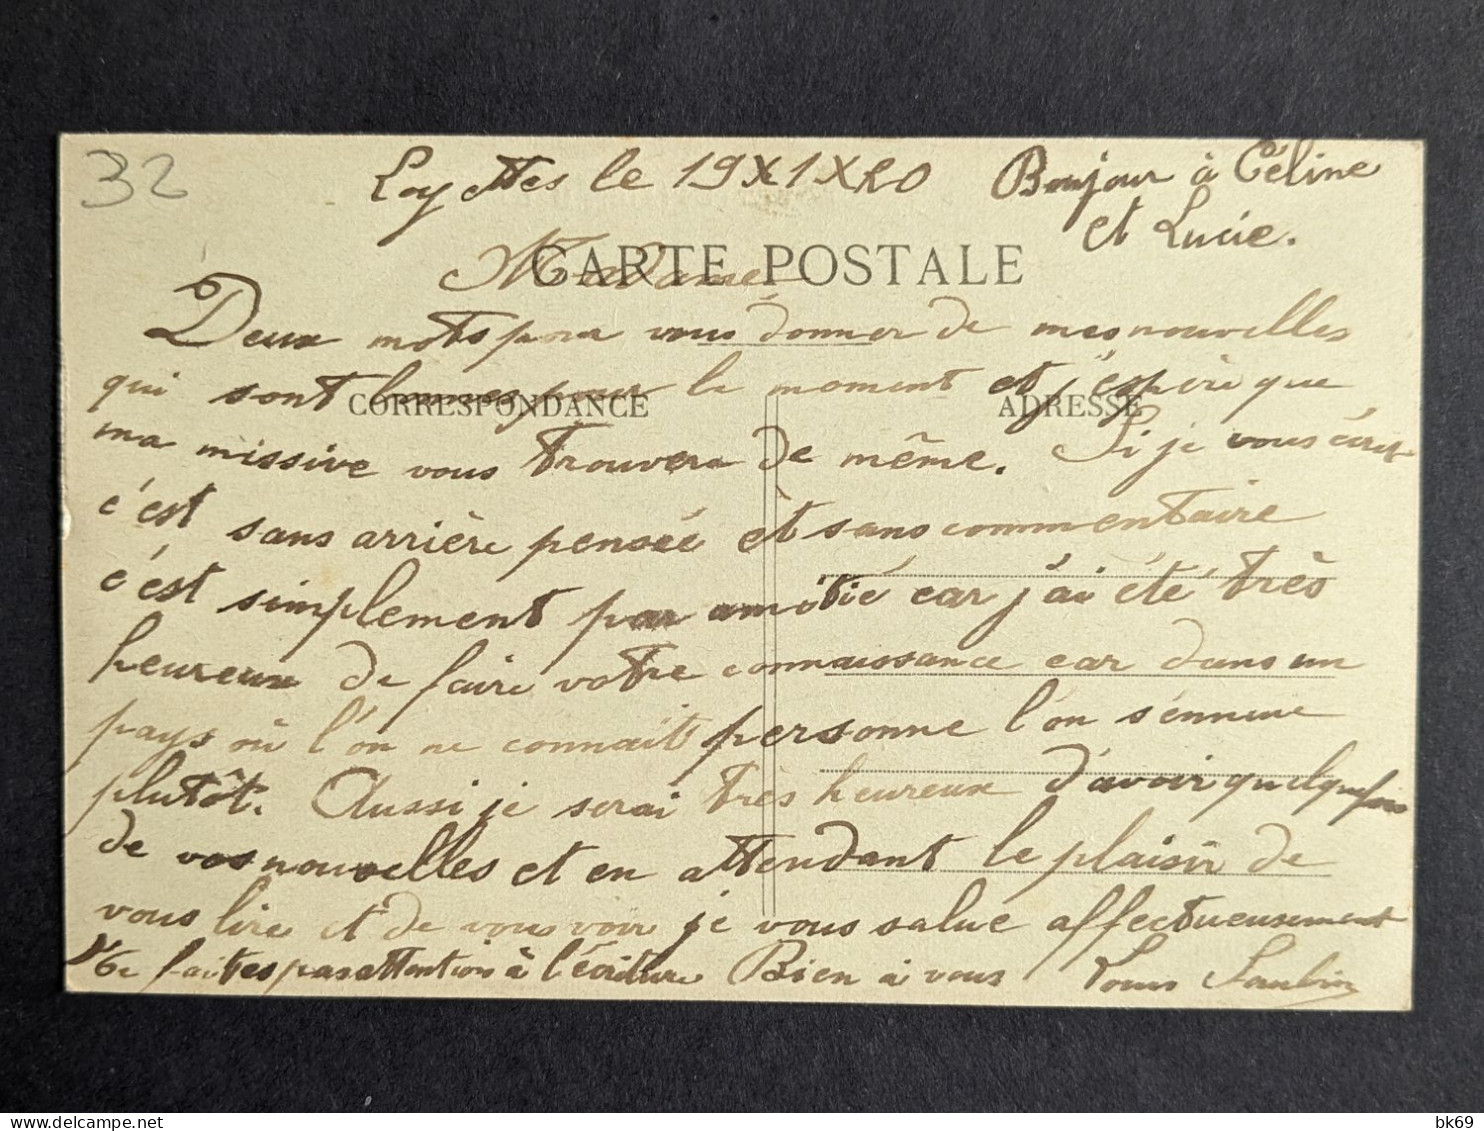 32
Loyettes le 19 X 1 X 20 Bonjour à Céline
et Lucie.
CARTE POSTALE
Madame
Deux mots pour vous donner de mes nouvelles
qui sont bonnes pour le moment et j'éspère que
CORRESPONDANCE ADRESSE
ma missive vous trouvera de même. Si je vous écris
c'est sans arrière pensée et sans commentaire
c'est simplement par amitié car j'ai été très
heureux de faire votre connaissance car dans un
pays où l'on ne connait personne l'on s'ennuie
plutôt. Aussi je serai très heureux d'avoir quelquefois
de vos nouvelles et en attendant le plaisir de
vous lire et de vous voir je vous salue affectueusement
Ne faites pas attention à l'écriture Bien à vous Louis
delcampe.net
bk69